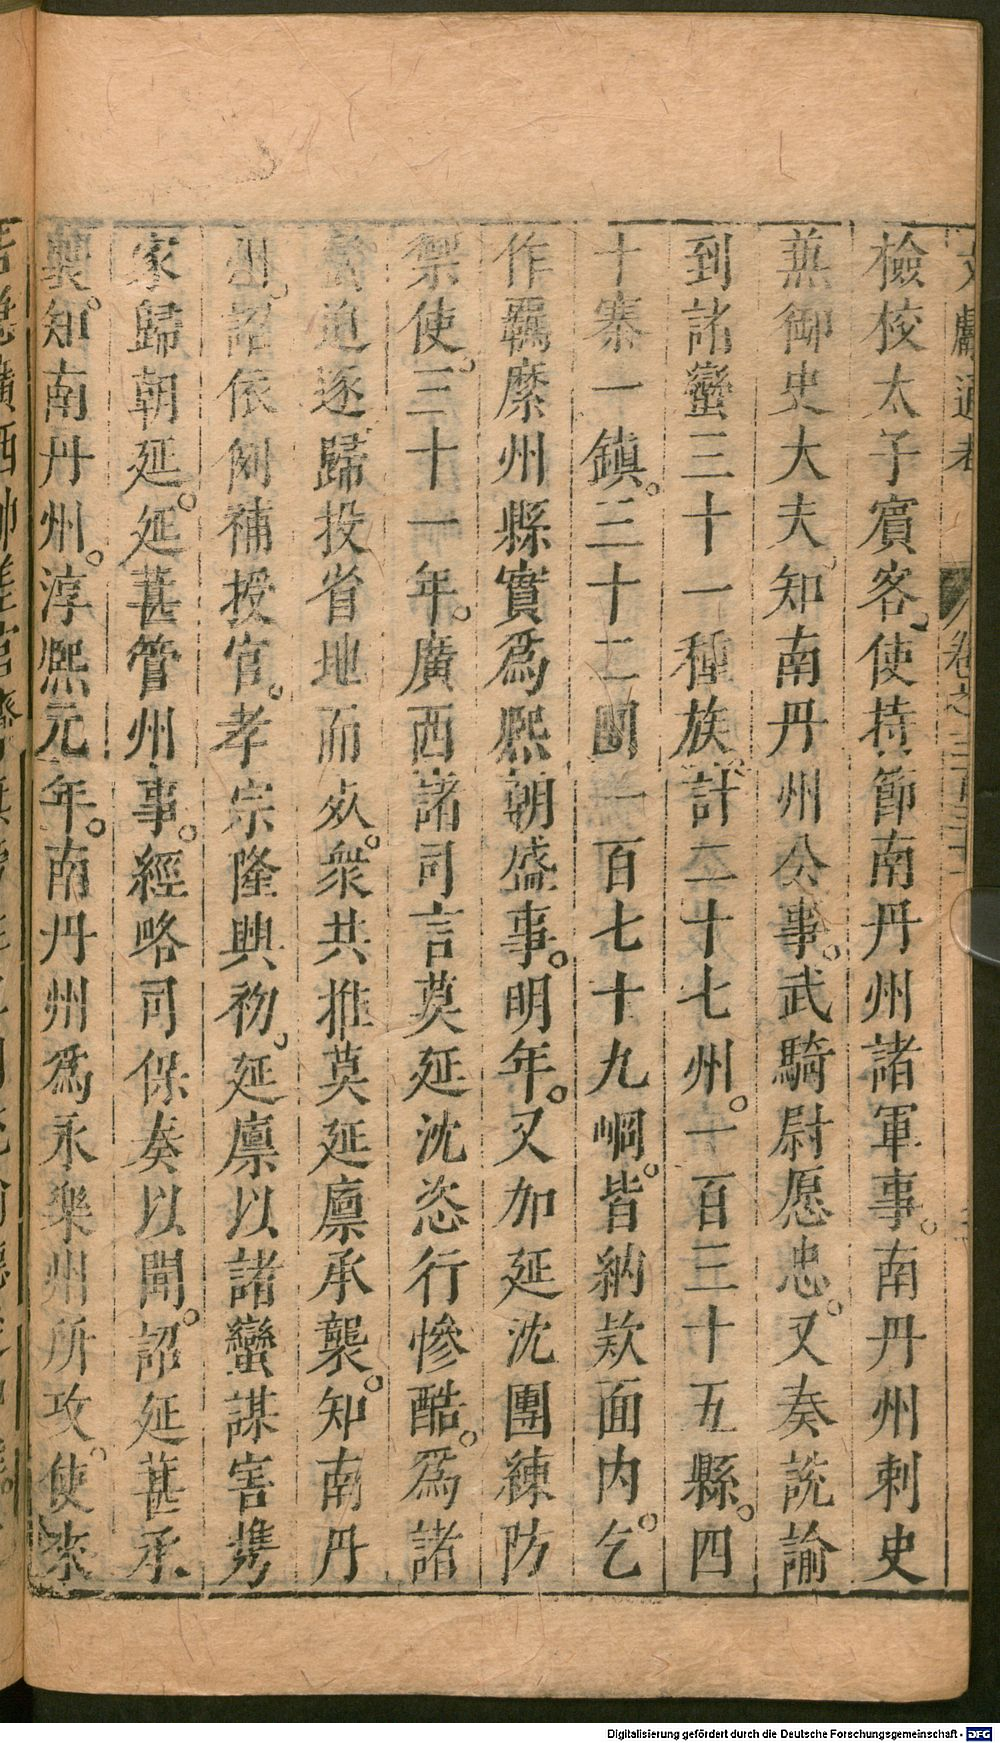 文獻通考 卷之三百三十
檢校太子賓客使持節南丹州諸軍事南丹州刺史
兼御史大夫知南丹州公事武騎尉愿忠又奏說諭
到諸蠻三十一種族計二十七州一百三十五縣四
十寨一鎮三十二團一百七十九峒皆納欵面内乞
作羈縻州縣實爲熙朝盛事明年又加延沈團練防
禦使三十一年廣西諸司言莫延沈恣行慘酷爲諸
蠻追逐歸投省地而死衆共推莫延廪承襲知南丹
州詔依例補授官孝宗隆興初延廪以諸蠻謀害携
家歸朝延延葚管州事經略司保奏以聞詔延葚承
襲知南丹州淳熙元年南丹州爲永樂州所攻使來
Digitalisierung gefördert durch die Deutsche Forschungsgemeinschaft - DFG